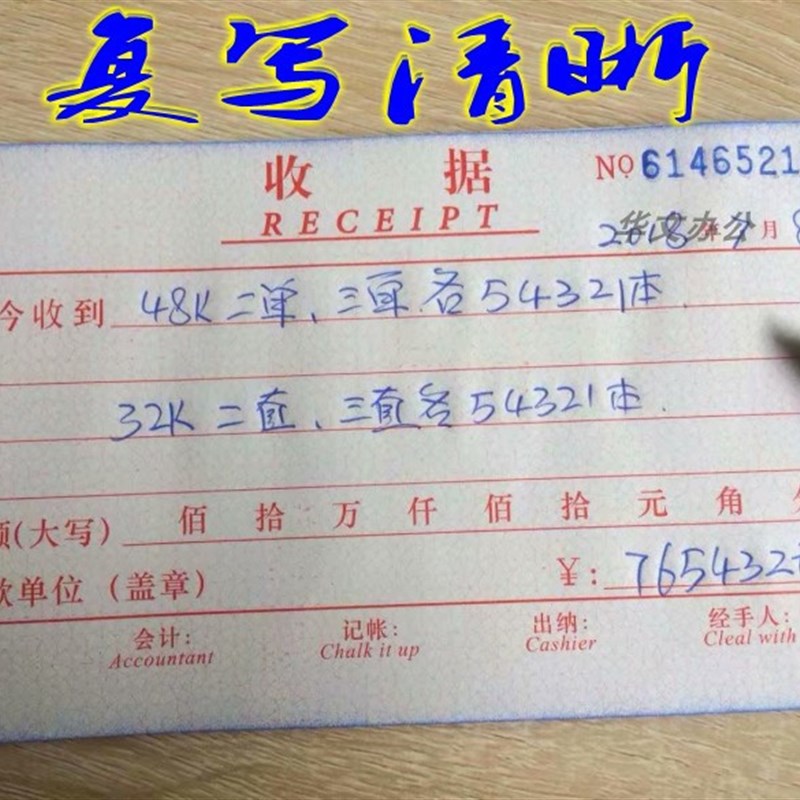 复写清晰
收 据 NO 6146521
RECEIPT
华文办公
2018年7月8
今收到 48K二单、三单各54321本.
32K二直、三直各54321本.
额(大写) 佰 拾 万 仟 佰 拾 元 角 分
款单位 (盖章) ¥: 765432
会计: 记帐: 出纳: 经手人:
Accountant Chalk it up Cashier Cleal with